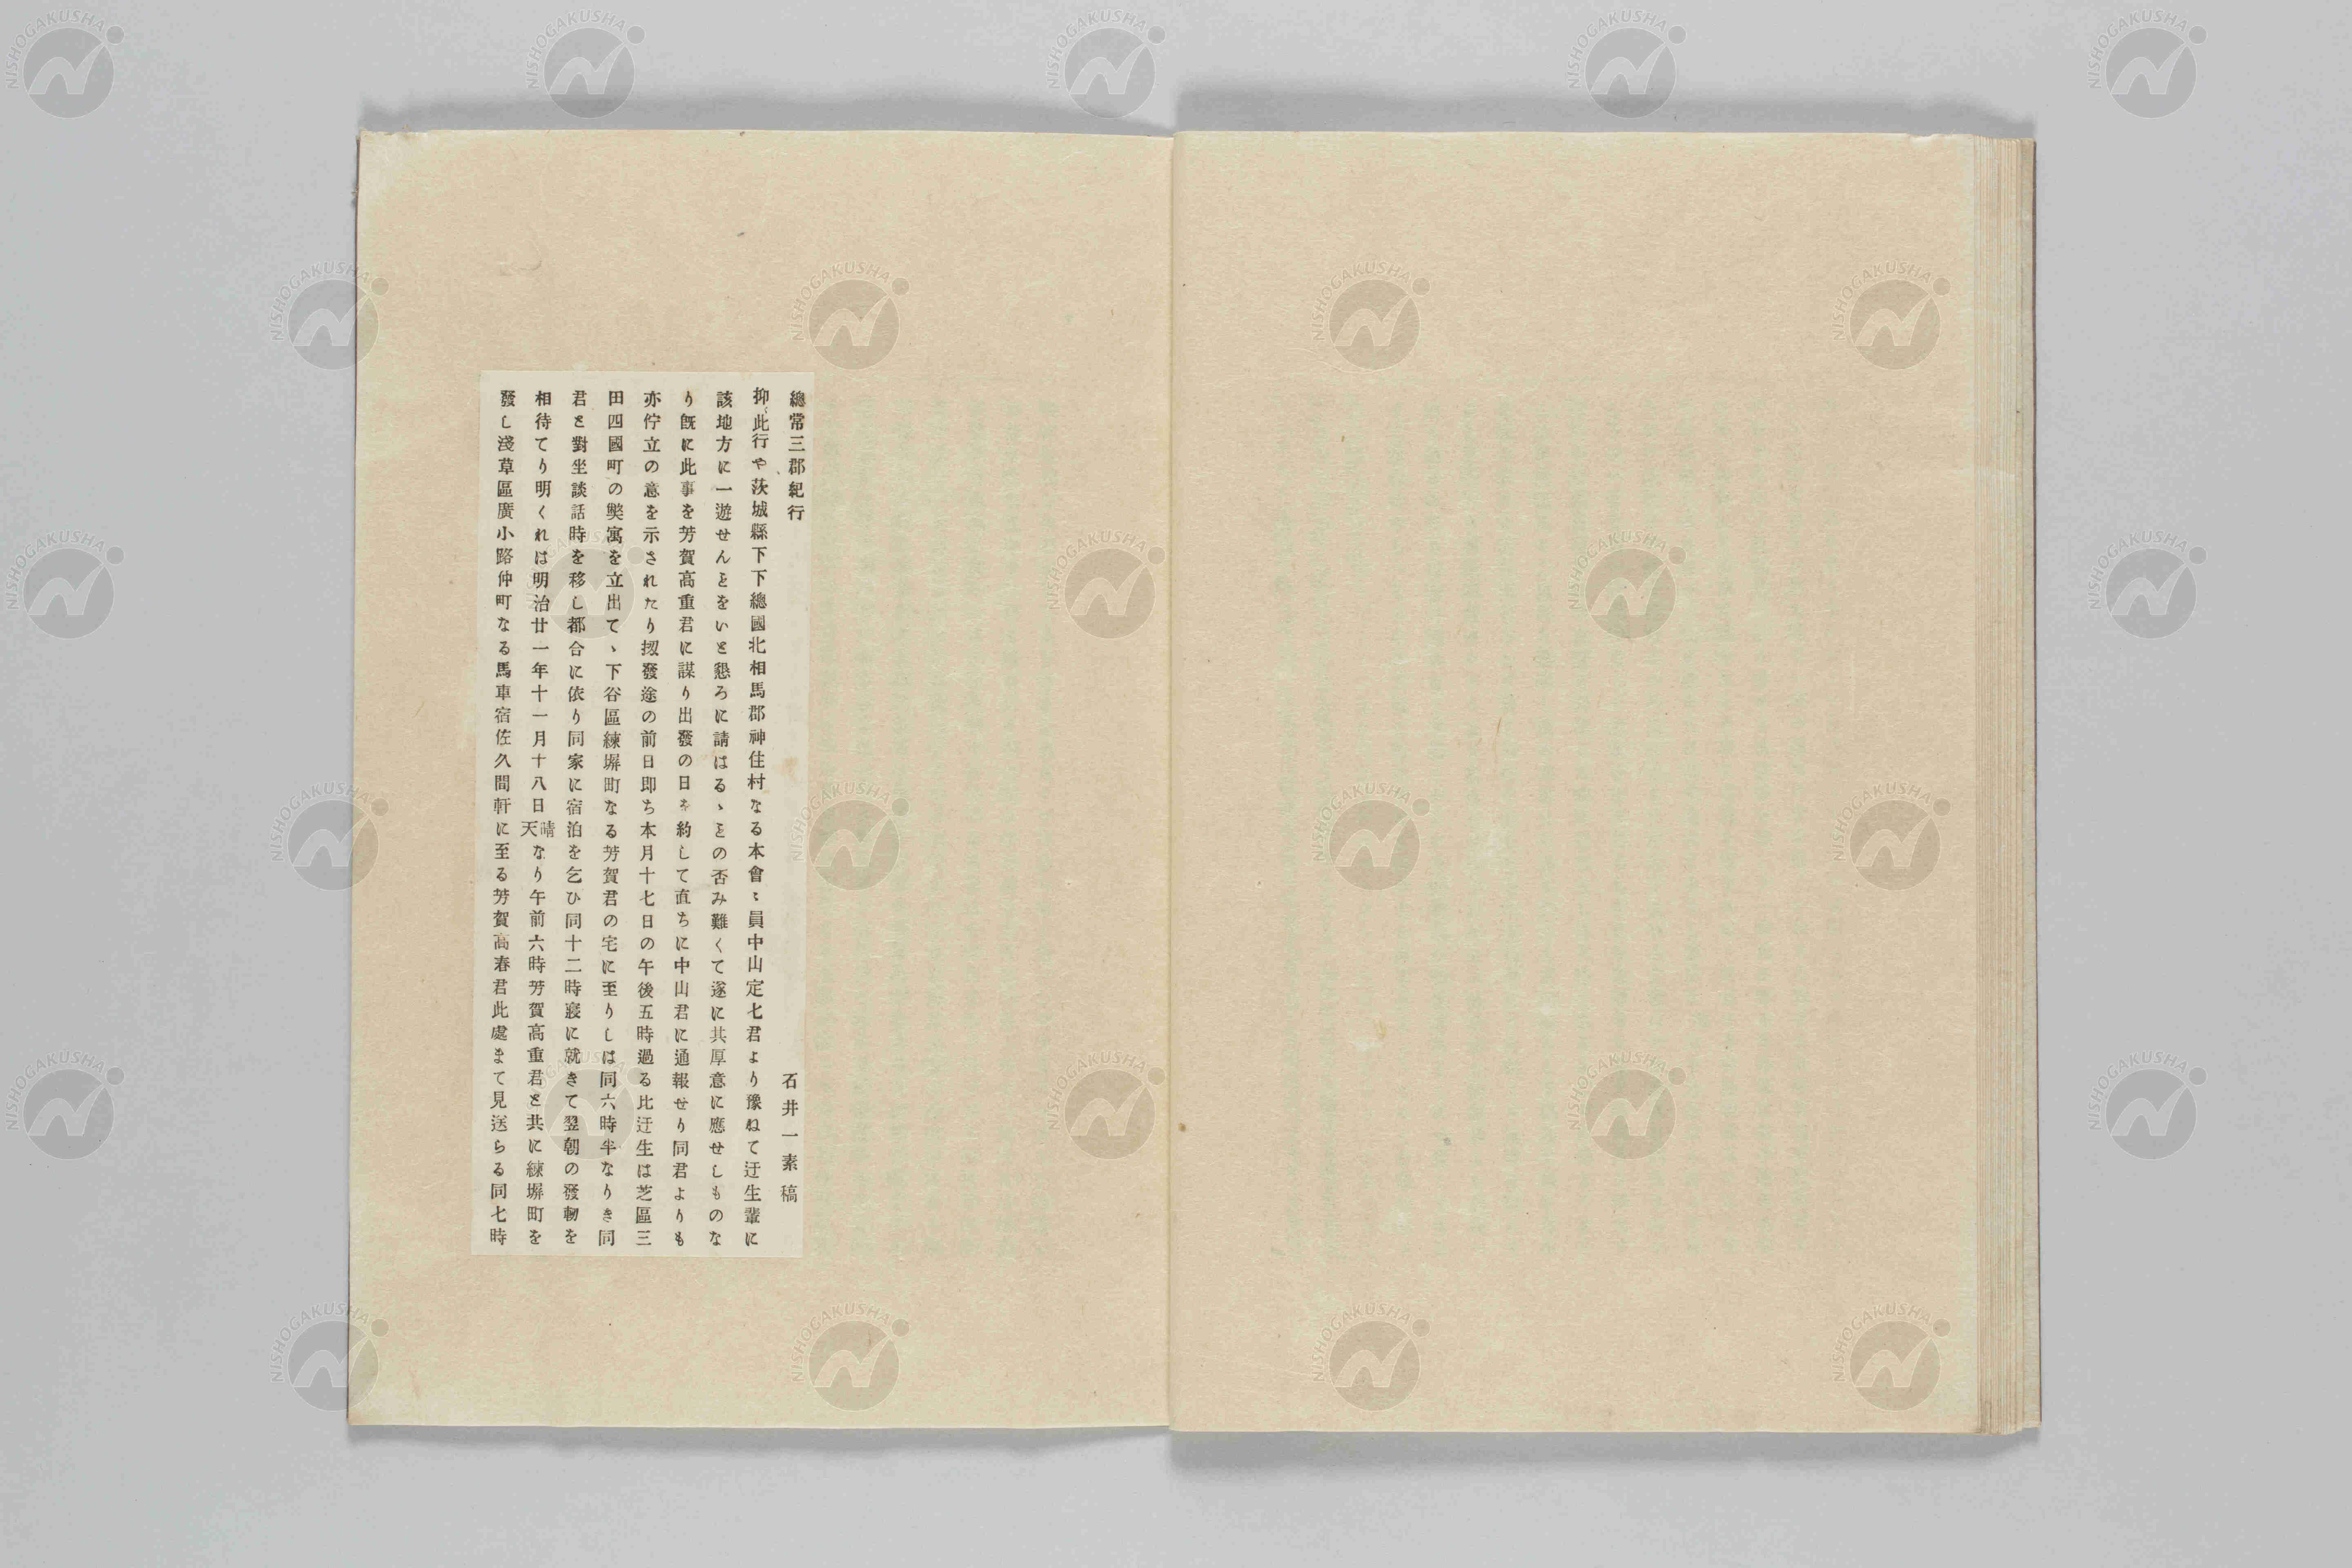 總常三郡紀行
石井一素稿
抑〻此行や茨城縣下下總國北相馬郡神住村なる本會〻員中山定七君より豫ねて迂生輩に
該地方に一遊せんとをいと懇ろに請はるゝとの否み難くて遂に其厚意に應せしものな
り既に此事を芳賀高重君に謀り出發の日を約して直ちに中山君に通報せり同君よりも
亦佇立の意を示されたり扨發途の前日即ち本月十七日の午後五時過る比迂生は芝區三
田四國町の弊寓を立出てゝ下谷區練塀町なる芳賀君の宅に至りしは同六時半なりき同
君と對坐談話時を移し都合に依り同家に宿泊を乞ひ同十二時寢に就きて翌朝の發軔を
相待てり明くれは明治廿一年十一月十八日晴天なり午前六時芳賀高重君と共に練塀町を
發し淺草區廣小路仲町なる馬車宿佐久間軒に至る芳賀高春君此處まて見送らる同七時
NISHOGAKUSHA